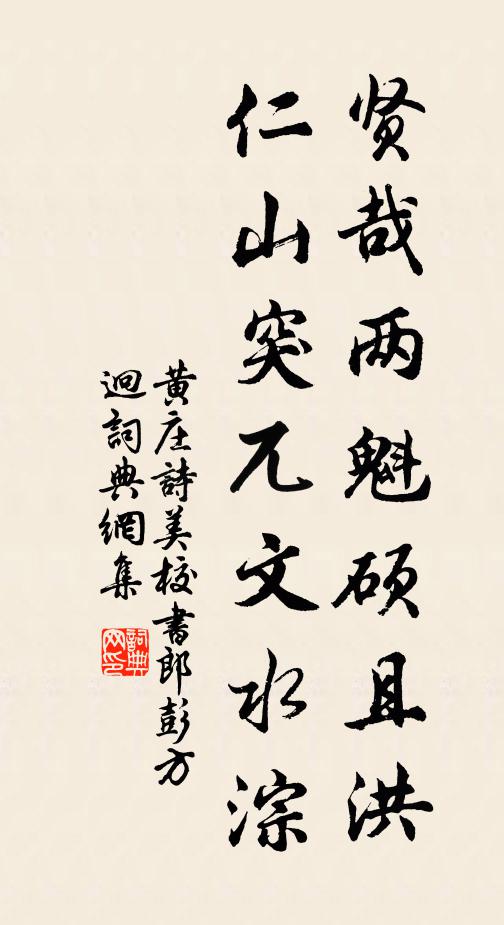 贤哉两魁硕且洪
仁山突兀文水淙
黄庄詩美校書郎彭方
迥詞典網集
詞典网印